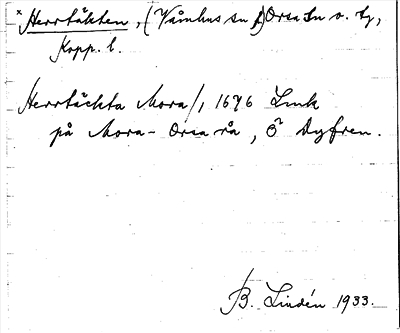 × Herrtäkten, (Våmhus sn) Orsa sn o. tg,
Kopp. l.
Herrtäckta Mora/, 1676 Link
på Mora - Orsa rå, Ö Dyfren.
B. Lindén 1933.